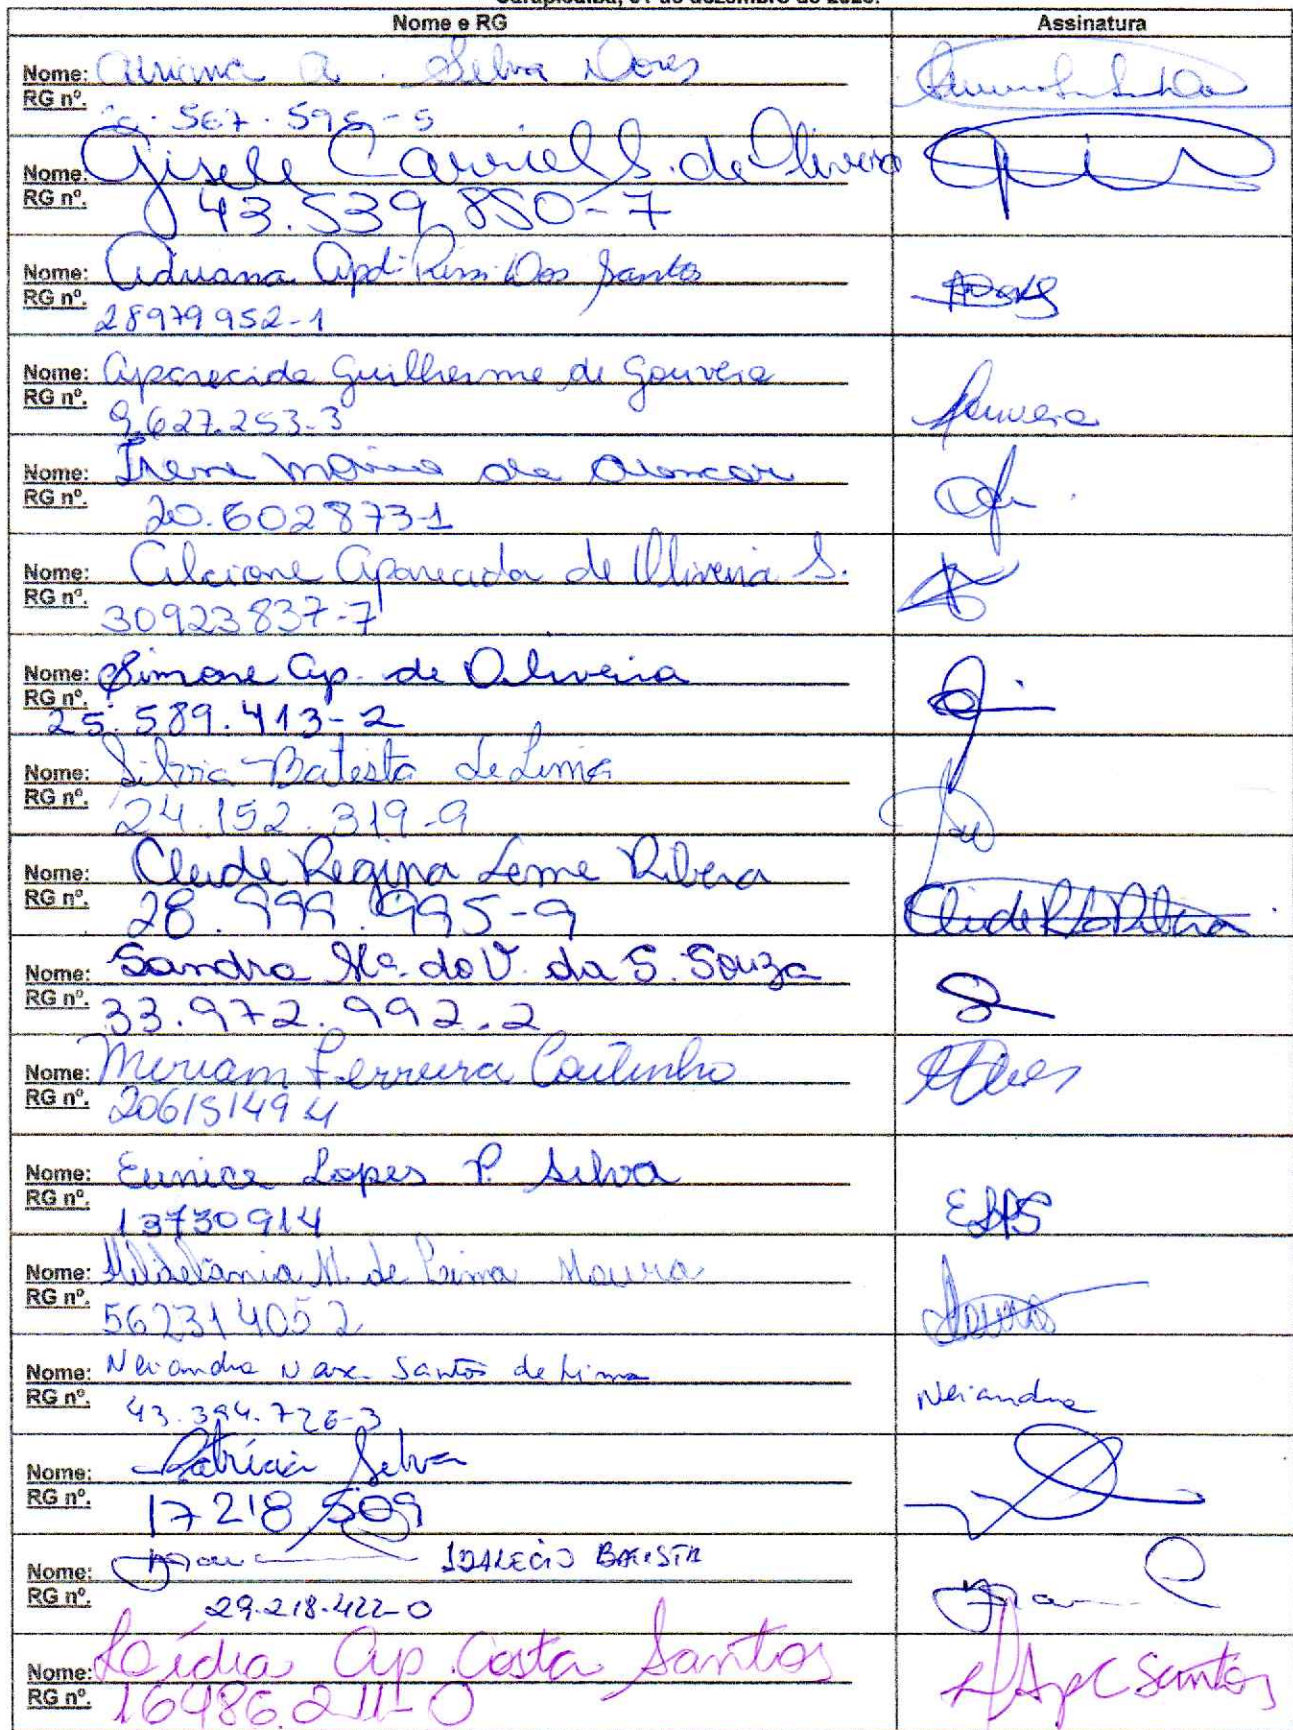 Carapicuíba, 01 de dezembro de 2020.
Nome e RG Assinatura
Nome: Adriana A. Silva Dores
RG nº. 567.595-5
Nome: Gisele Carriel S. de Oliveira
RG nº. 43.539.850-7
Nome: Adriana Apd. Dos Santos
RG nº. 28979952-1
Nome: Aparecida Guilherme de Gouveia Gouveia
RG nº. 9.627.253-3
Nome: Irene Maria de Alencar
RG nº. 20.6028731
Nome: Alcione Aparecida de Oliveira S.
RG nº. 30923837-7
Nome: Simone Ap. de Oliveira
RG nº. 25.589.413-2
Nome: Silvia Batista de Lima
RG nº. 24.152.319-9
Nome: Cleide Regina Leme Ribera
RG nº. 28.999.995-9 Cleide R L Ribera
Nome: Sandra Mª. do V. da S. Souza
RG nº. 33.972.992.2
Nome: Miriam Ferreira Coutinho
RG nº. 206151494
Nome: Eunice Lopes P. Silva
RG nº. 13730914 ELPS
Nome: Hildelania M. de Lima Moura
RG nº. 562314052 Moura
Nome: Neiandra Santos de Lima Neiandra
RG nº. 43.394.726-3
Nome: Patrícia Silva
RG nº. 17218509
Nome: IDALECIO BATISTA
RG nº. 29.218.422-0
Nome: Leídia Ap. Costa Santos
RG nº. 16486211-0 L Ap C Santos